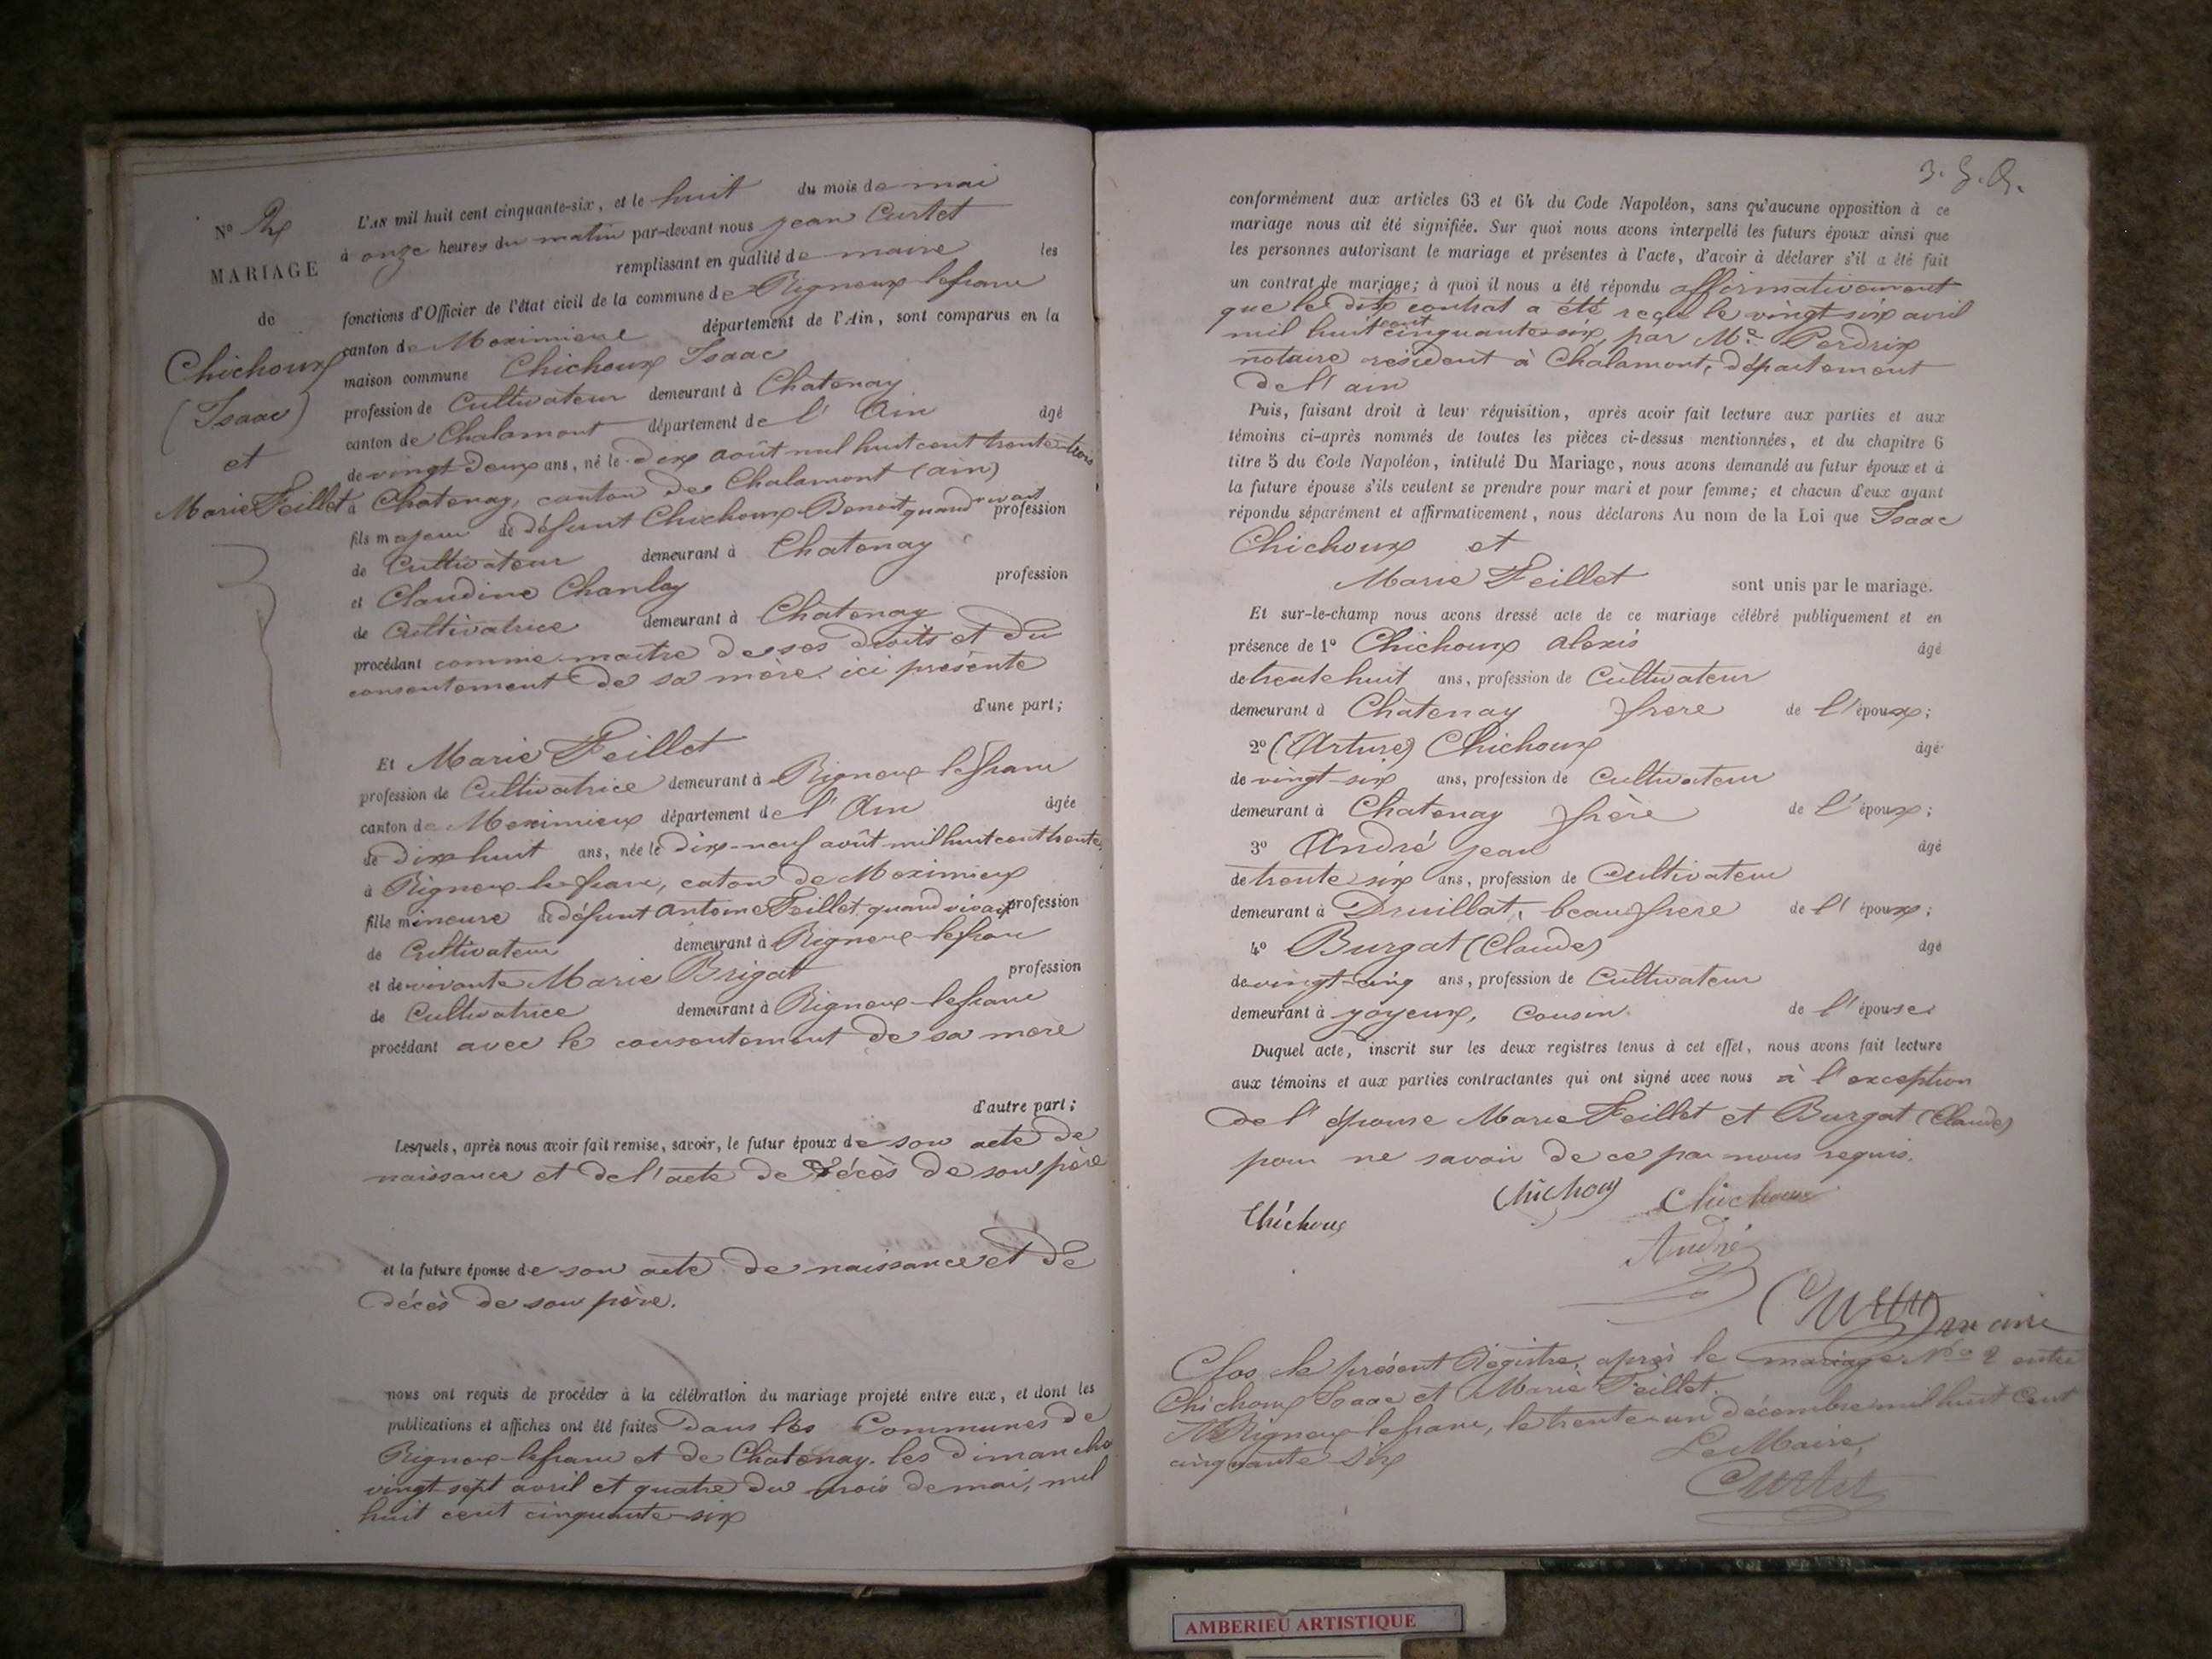 N° 2
MARIAGE
de
Chichoux
(Isaac)
et
Marie Feillet
L'AN mil huit cent cinquante-six, et le huit du mois de mai
à onze heures du matin par-devant nous jean Curtet
remplissant en qualité de maire les
fonctions d'Officier de l'état civil de la commune de Rigneux-lefranc
canton de Meximieux département de l'Ain, sont comparus en la
maison commune Chichoux Isaac
profession de Cultivateur demeurant à Chatenay
canton de Chalamont département de l' Ain âgé
de vingt-deux ans, né le dix août mil huit cent trente-trois
à Chatenay, canton de Chalamont (ain)
fils majeur de défunt Chichoux Benoit quand vivait profession
de Cultivateur demeurant à Chatenay
et Claudine Chanlay profession
de Cultivatrice demeurant à Chatenay
procédant comme maître de ses droits et du
consentement de sa mère ici présente
d'une part;
Et Marie Feillet
profession de Cultivatrice demeurant à Rigneux-lefranc
canton de Meximieux département de l' Ain âgée
de dix huit ans, née le dix-neuf août mil huit cent trente
à Rigneux-lefranc, caton de Meximieux
fille mineure de défunt antoine Feillet quand vivait profession
de Cultivateur demeurant à Rigneux-lefranc
et de vivante Marie Brigat profession
de Cultivatrice demeurant à Rigneux-lefranc
procédant avec le consentement de sa mère
d'autre part;
Lesquels, après nous avoir fait remise, savoir, le futur époux de son acte de
naissance et de l'acte de décès de son père
et la future épouse de son acte de naissance et de
décès de son père.
nous ont requis de procéder à la célébration du mariage projeté entre eux, et dont les
publications et affiches ont été faites dans les Communes de
Rigneux-lefranc et de Chatenay. les dimanche
vingt sept avril et quatre du mois de mai, mil
huit cent cinquante-six
conformément aux articles 63 et 64 du Code Napoléon, sans qu'aucune opposition à ce
mariage nous ait été signifiée. Sur quoi nous avons interpellé les futurs époux ainsi que
les personnes autorisant le mariage et présentes à l'acte, d'avoir à déclarer s'il a été fait
un contrat de mariage; à quoi il nous a été répondu affirmativement
que le dit contrat a été reçu le vingt-six avril
mil huit cent cinquante-six, par Me Perdrix
notaire résident à Chalamont, département
de l' ain
Puis, faisant droit à leur réquisition, après avoir fait lecture aux parties et aux
témoins ci-après nommés de toutes les pièces ci-dessus mentionnées, et du chapitre 6
titre 5 du Code Napoléon, intitulé Du Mariage, nous avons demandé au futur époux et à
la future épouse s'ils veulent se prendre pour mari et pour femme; et chacun d'eux ayant
répondu séparément et affirmativement, nous déclarons Au nom de la Loi que Isaac
Chichoux et
Marie Feillet sont unis par le mariage.
Et sur-le-champ nous avons dressé acte de ce mariage célébré publiquement et en
présence de 1° Chichoux alexis âgé
de trente huit ans, profession de Cultivateur
demeurant à Châtenay frère de l'époux;
2° (Arture) Chichoux âgé
de vingt-six ans, profession de Cultivateur
demeurant à Chatenay frère de l'époux;
3° André jean âgé
de trente six ans, profession de Cultivateur
demeurant à Druillat, beau frère de l'époux;
4° Burgat (Claude) âgé
de vingt-cinq ans, profession de Cultivateur
demeurant à joyeux, cousin de l'épouse
Duquel acte, inscrit sur les deux registres tenus à cet effet, nous avons fait lecture
aux témoins et aux parties contractantes qui ont signé avec nous à l'exception
de l'épouse Marie Feillet et Burgat (Claude)
pour ne savoir de ce par nous requis.
Chichoux Chichoux Chichoux
André
Curtet maire
Clos le présent Régistre, après le mariage No 2 entre
Chichoux Isaac et Marie Feillet.
A Rigneux-lefranc, le trente-un décembre mil huit cent
cinquante six
Le Maire,
Curtet
AMBERIEU ARTISTIQUE